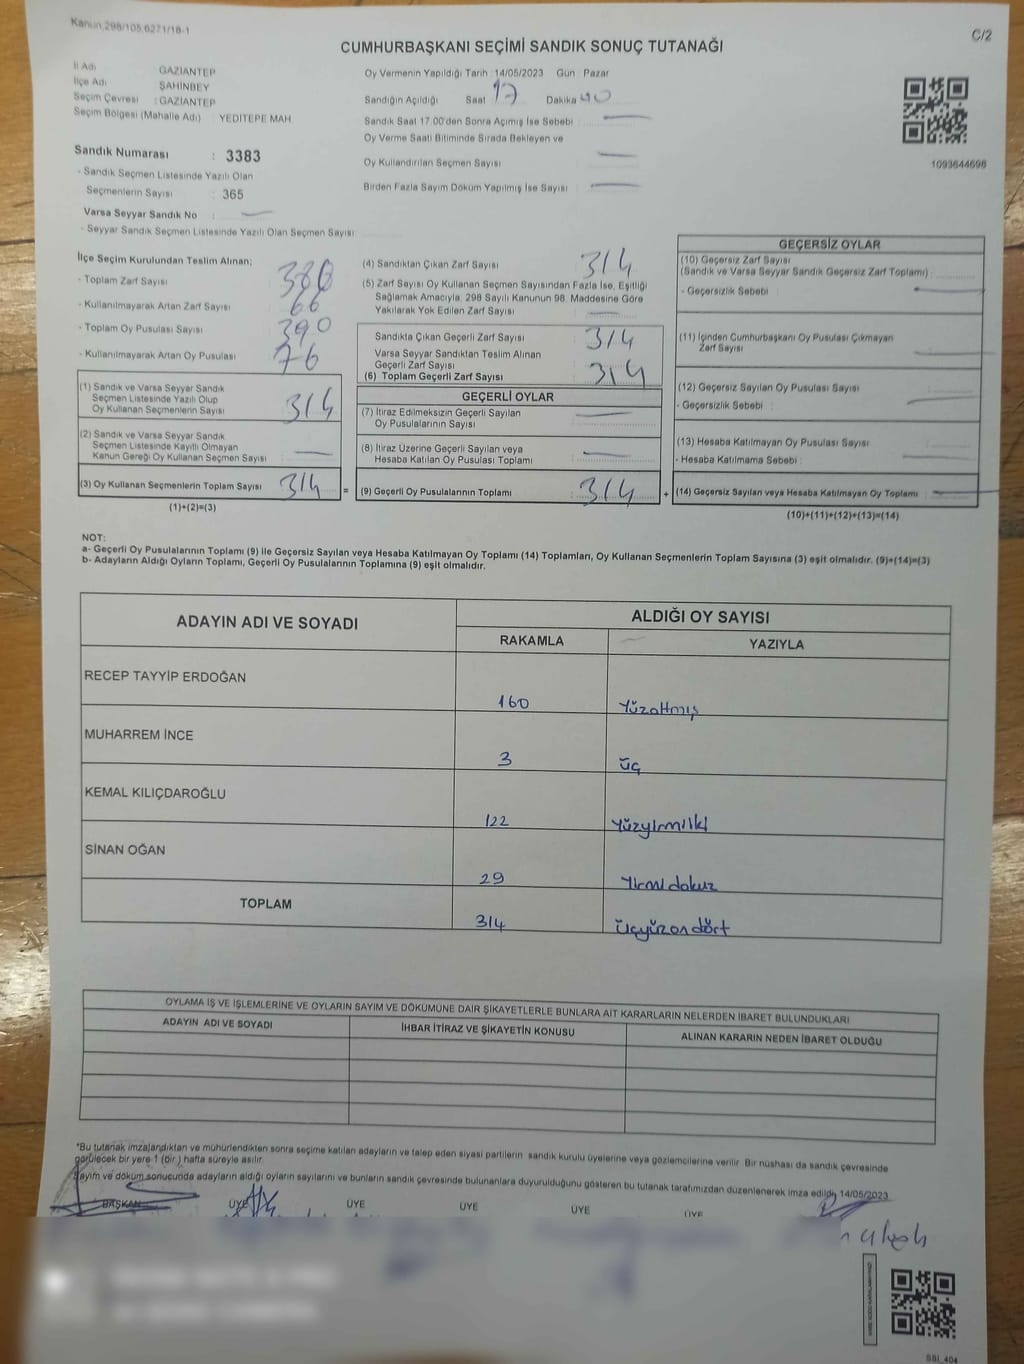 Kanun,298/105,6271/18-1
C/2
CUMHURBAŞKANI SEÇİMİ SANDIK SONUÇ TUTANAĞI
İl Adı GAZİANTEP
İlçe Adı ŞAHİNBEY
Seçim Çevresi : GAZİANTEP
Seçim Bölgesi (Mahalle Adı) YEDİTEPE MAH
Sandık Numarası : 3383
- Sandık Seçmen Listesinde Yazılı Olan
Seçmenlerin Sayısı : 365
Varsa Seyyar Sandık No :
- Seyyar Sandık Seçmen Listesinde Yazılı Olan Seçmen Sayısı
Oy Vermenin Yapıldığı Tarih :14/05/2023 Gün : Pazar
Sandığın Açıldığı Saat 17 Dakika 40
Sandık Saat 17:00'den Sonra Açımış İse Sebebi :
Oy Verme Saati Bitiminde Sırada Bekleyen ve
Oy Kullandırılan Seçmen Sayısı
Birden Fazla Sayım Döküm Yapılmış İse Sayısı
1093644696
İlçe Seçim Kurulundan Teslim Alınan;
- Toplam Zarf Sayısı 380
- Kullanılmayarak Artan Zarf Sayısı 66
- Toplam Oy Pusulası Sayısı 390
- Kullanılmayarak Artan Oy Pusulası 76
(1) Sandık ve Varsa Seyyar Sandık
Seçmen Listesinde Yazılı Olup
Oy Kullanan Seçmenlerin Sayısı 314
(2) Sandık ve Varsa Seyyar Sandık
Seçmen Listesinde Kayıtlı Olmayan
Kanun Gereği Oy Kullanan Seçmen Sayısı :
(3) Oy Kullanan Seçmenlerin Toplam Sayısı 314 =
(1)+(2)=(3)
(4) Sandıktan Çıkan Zarf Sayısı 314
(5) Zarf Sayısı Oy Kullanan Seçmen Sayısından Fazla İse, Eşitliği
Sağlamak Amacıyla, 298 Sayılı Kanunun 98. Maddesine Göre
Yakılarak Yok Edilen Zarf Sayısı
Sandıkta Çıkan Geçerli Zarf Sayısı 314
Varsa Seyyar Sandıktan Teslim Alınan
Geçerli Zarf Sayısı
(6) Toplam Geçerli Zarf Sayısı 314
GEÇERLİ OYLAR
(7) İtiraz Edilmeksizin Geçerli Sayılan
Oy Pusulalarının Sayısı
(8) İtiraz Üzerine Geçerli Sayılan veya
Hesaba Katılan Oy Pusulası Toplamı
(9) Geçerli Oy Pusulalarının Toplamı 314 +
GEÇERSİZ OYLAR
(10) Geçersiz Zarf Sayısı
(Sandık ve Varsa Seyyar Sandık Geçersiz Zarf Toplamı) :
- Geçersizlik Sebebi :
(11) İçinden Cumhurbaşkanı Oy Pusulası Çıkmayan
Zarf Sayısı
(12) Geçersiz Sayılan Oy Pusulası Sayısı
- Geçersizlik Sebebi :
(13) Hesaba Katılmayan Oy Pusulası Sayısı
- Hesaba Katılmama Sebebi :
(14) Geçersiz Sayılan veya Hesaba Katılmayan Oy Toplamı
(10)+(11)+(12)+(13)=(14)
NOT:
a- Geçerli Oy Pusulalarının Toplamı (9) ile Geçersiz Sayılan veya Hesaba Katılmayan Oy Toplamı (14) Toplamları, Oy Kullanan Seçmenlerin Toplam Sayısına (3) eşit olmalıdır. (9)+(14)=(3)
b- Adayların Aldığı Oyların Toplamı, Geçerli Oy Pusulalarının Toplamına (9) eşit olmalıdır.
ADAYIN ADI VE SOYADI
ALDIĞI OY SAYISI
RAKAMLA YAZIYLA
RECEP TAYYİP ERDOĞAN 160 Yüzaltmış
MUHARREM İNCE 3 üç
KEMAL KILIÇDAROĞLU 122 Yüzyirmiiki
SİNAN OĞAN 29 Yirmidokuz
TOPLAM 314 üçyüzondört
OYLAMA İŞ VE İŞLEMLERİNE VE OYLARIN SAYIM VE DÖKÜMÜNE DAİR ŞİKAYETLERLE BUNLARA AİT KARARLARIN NELERDEN İBARET BULUNDUKLARI
ADAYIN ADI VE SOYADI
İHBAR İTİRAZ VE ŞİKAYETİN KONUSU
ALINAN KARARIN NEDEN İBARET OLDUĞU
*Bu tutanak imzalandıktan ve mühürlendikten sonra seçime katılan adayların ve talep eden siyasi partilerin sandık kurulu üyelerine veya gözlemcilerine verilir. Bir nüshası da sandık çevresinde
görülecek bir yere 1 (bir) hafta süreyle asılır.
Sayım ve döküm sonucunda adayların aldığı oyların sayılarını ve bunların sandık çevresinde bulunanlara duyurulduğunu gösteren bu tutanak tarafımızdan düzenlenerek imza edildi. 14/05/2023
BAŞKAN ÜYE ÜYE ÜYE ÜYE ÜYE
SBİ_404